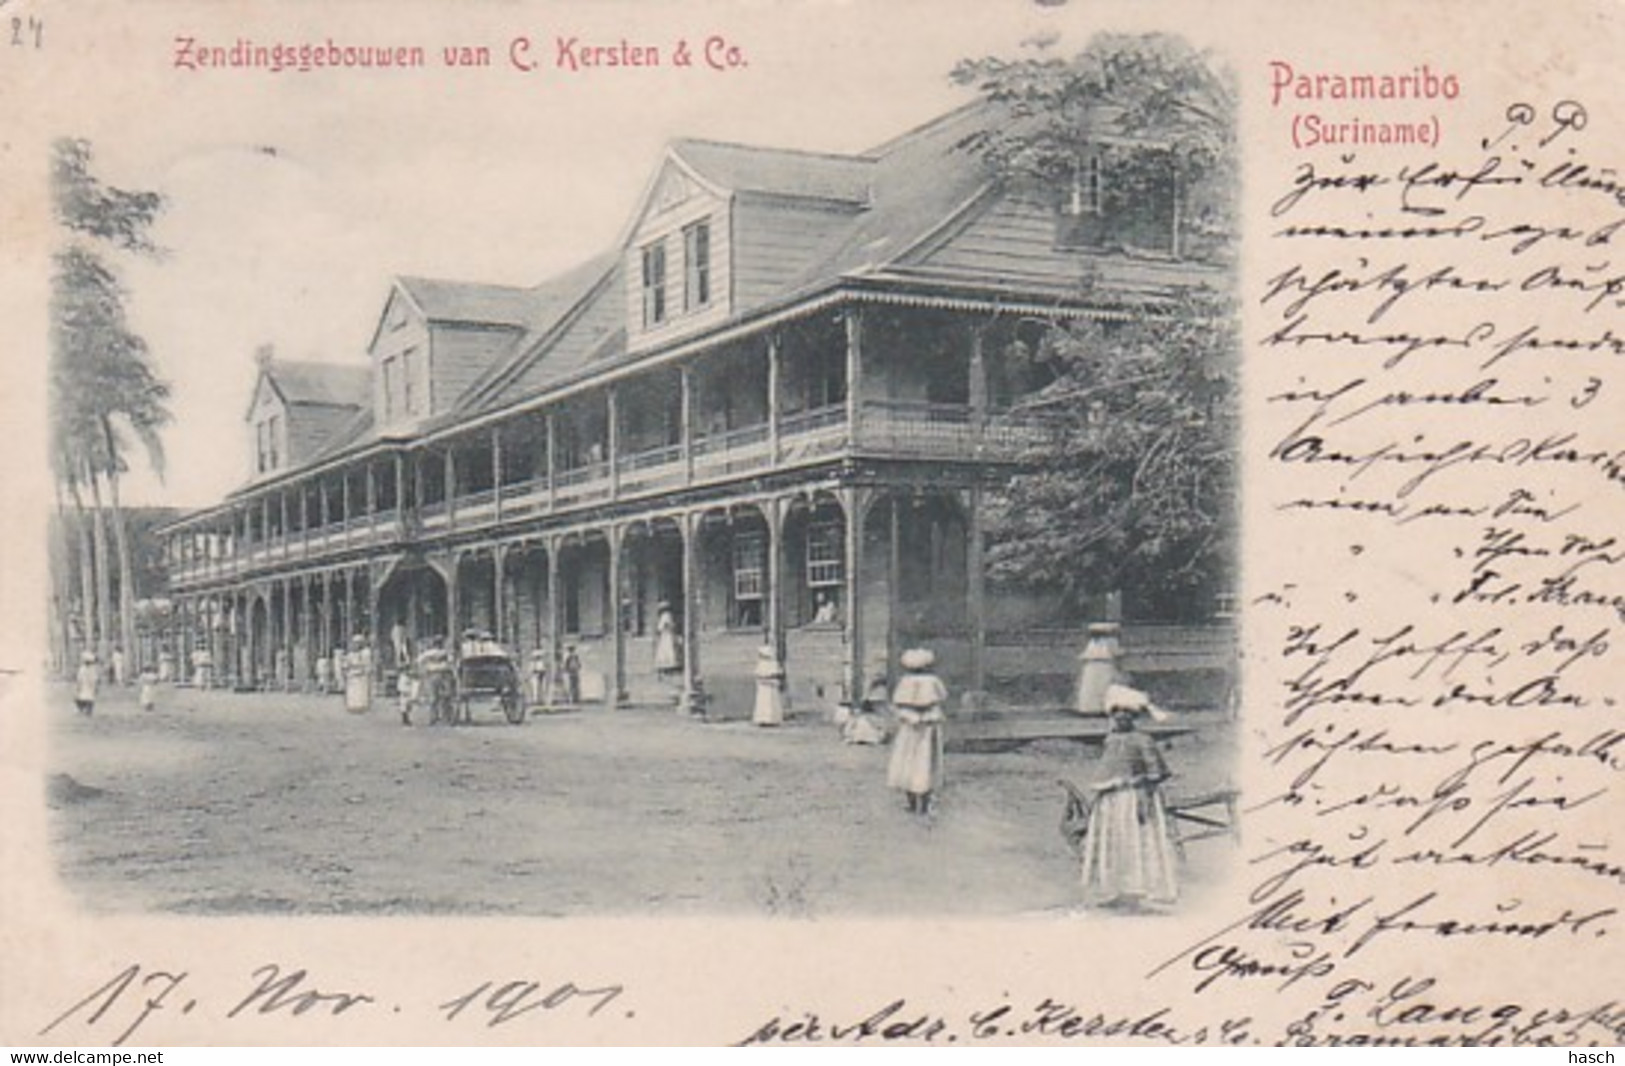 24
Zendingsgebouwen van C. Kersten & Co.
Paramaribo
(Suriname)
P. P.
Zur Erfüllung
meines ge
schätzten Auf
trages sende
ich anbei 3
Ansichtskarten
eine an Sie
" " Ihren Sohn
u. " " Frl.
Ich hoffe, daß
Ihnen die An-
sichten gefallen
u. daß sie
gut ankommen
Mit freundl.
Gruß
17. Nov. 1901.
per Adr. C. Kersten & Co. Paramaribo.
www.delcampe.net
hasch